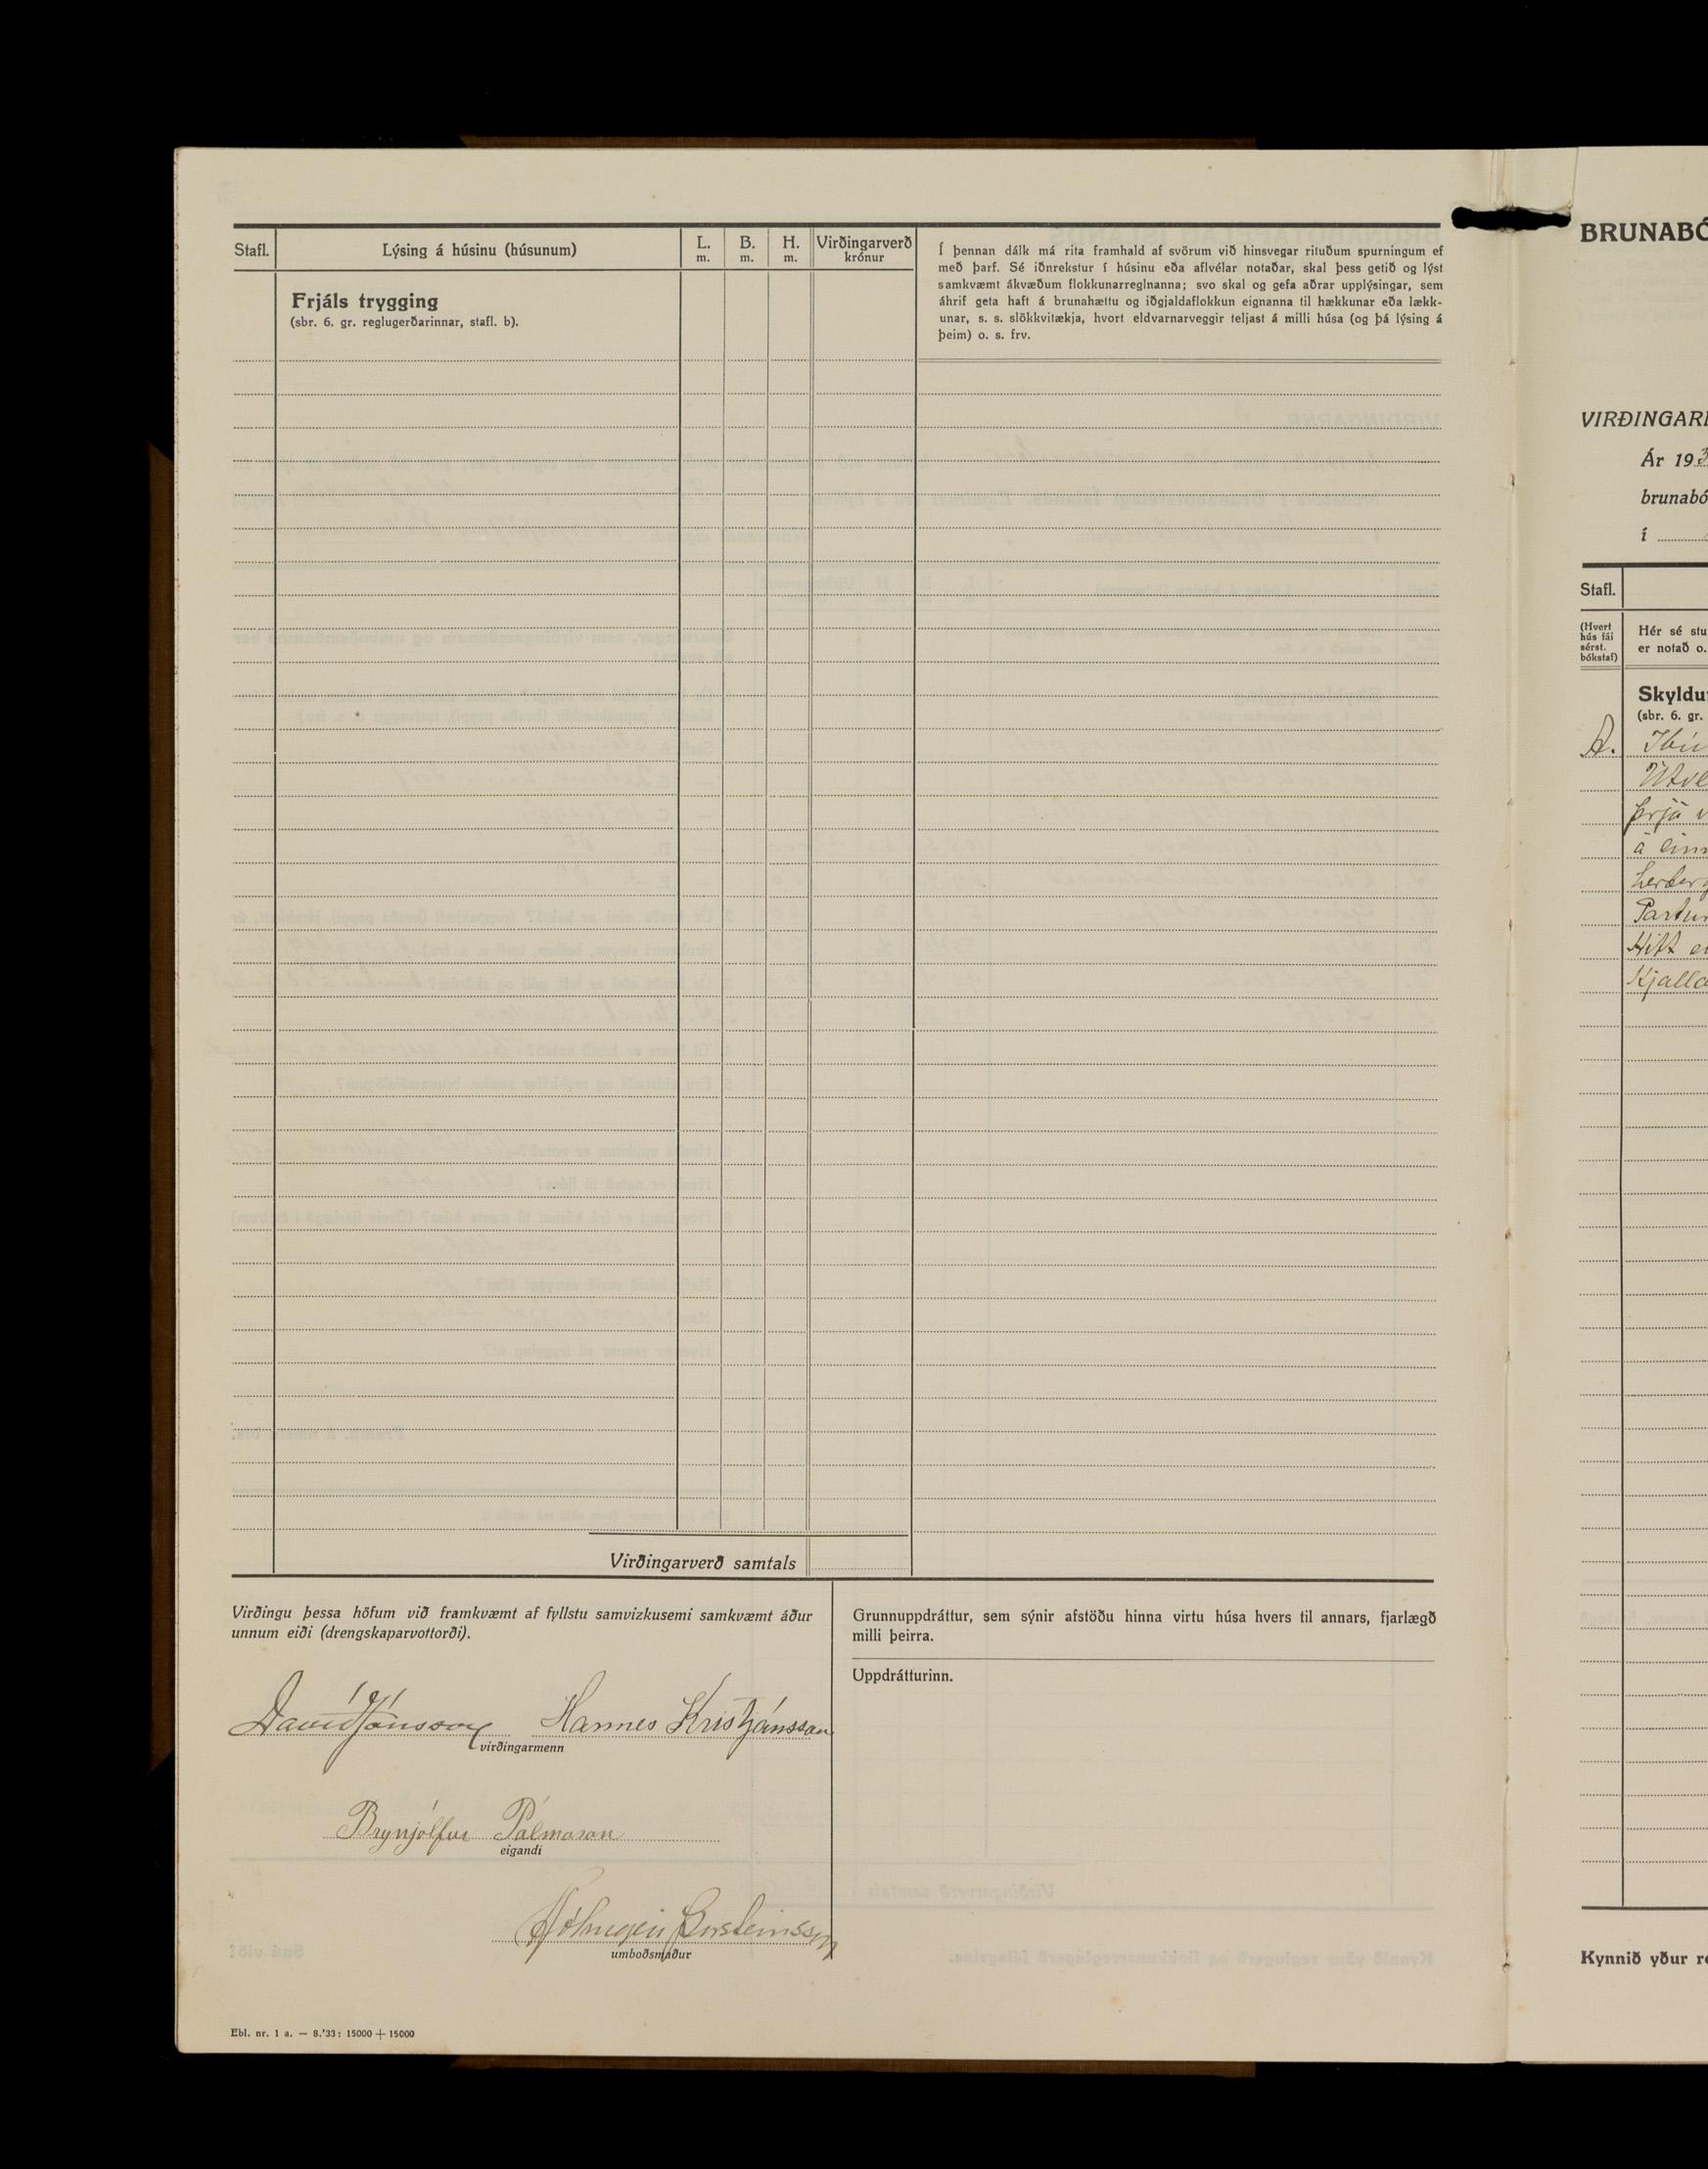 Stafl.
Lýsing á húsinu (húsunum)
L.
m.
B.
m.
H.
m.
Virðingarverð
krónur
Í þennan dálk má rita framhald af svörum við hinsvegar rituðum spurningum ef
með þarf. Sé iðnrekstur í húsinu eða aflvélar notaðar, skal þess getið og lýst
samkvæmt ákvæðum flokkunarreglnanna; svo skal og gefa aðrar upplýsingar, sem
áhrif geta haft á brunahættu og iðgjaldaflokkun eignanna til hækkunar eða lækk-
unar, s. s. slökkvitækja, hvort eldvarnarveggir teljast á milli húsa (og þá lýsing á
þeim) o. s. frv.
Frjáls trygging
(sbr. 6. gr. reglugerðarinnar, stafl. b).
Virðingarverð samtals
Virðingu þessa höfum við framkvæmt af fyllstu samvizkusemi samkvæmt áður
unnum eiði (drengskaparvottorði).
Davíð Jónsson Hannes Kristjánsson
virðingarmenn
Brynjólfur Pálmason
eigandi
Hólmgeir Þorsteinsson
umboðsmaður
Grunnuppdráttur, sem sýnir afstöðu hinna virtu húsa hvers til annars, fjarlægð
milli þeirra.
Uppdrátturinn.
Ebl. nr. 1 a. — 8.'33: 15000 + 15000
BRUNABÓ
VIRÐINGAR
Ár 193
brunabó
í
Stafl.
(Hvert
hús fái
sérst.
bókstaf)
Hér sé stu
er notað o.
Skyldu
(sbr. 6. gr.
A. Íbú
Útve
þrjá v
á einn
herberg
Partur
Hitt er
Kjalla
Kynnið yður re